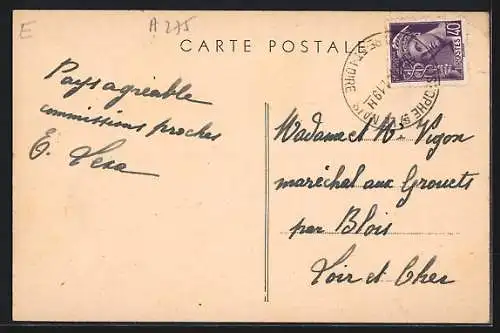 E
A 275
CARTE POSTALE
POSTES 40
Pays agréable
commissions proches
E.
Madame et Mr Vigon
maréchal aux Grouets
par Blois
Loir et Cher